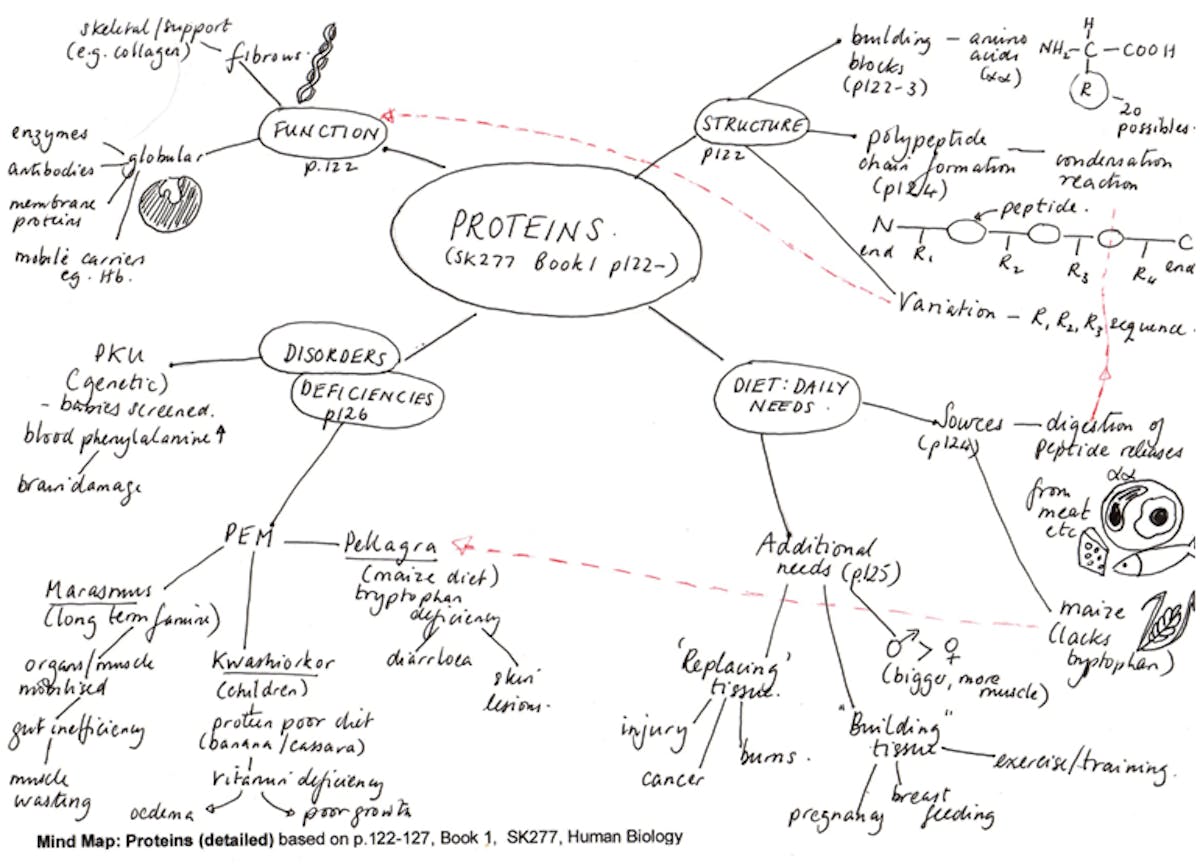 PROTEINS.
(SK277 Book 1 p122-)
FUNCTION
p.122
fibrous.
skeletal/support
(e.g. collagen)
globular
enzymes
antibodies
membrane
proteins
mobile carriers
eg. Hb.
STRUCTURE
p122
building
blocks
(p122-3)
- amino
acids
(αα)
H
NH2-C-COOH
R
20
possibles.
polypeptide
chain formation
(p124)
condensation
reaction
peptide.
N
end
R1
R2
R3
R4
C
end
Variation - R1 R2, R3 sequence.
DIET: DAILY
NEEDS.
Sources
(p124)
digestion of
peptide releases
αα
from
meat
etc
maize
(lacks
tryptophan)
Additional
needs (p125)
♂ > ♀
(bigger, more
muscle)
'Replacing'
tissue.
injury
cancer
burns.
"Building"
tissue
exercise/training.
pregnancy
breast
feeding
DISORDERS
DEFICIENCIES
p126
PKU
(genetic)
- babies screened.
blood phenylalanine ↑
brain damage
PEM
Marasmus
(long term famine)
organs/muscle
mobilised
gut inefficiency
muscle
wasting
Kwashiorkor
(children)
protein poor diet
(banana/cassava)
vitamin deficiency
oedema
poor growth
Pellagra
(maize diet)
tryptophan
deficiency
diarrhoea
skin
lesions.
Mind Map: Proteins (detailed) based on p.122-127, Book 1, SK277, Human Biology